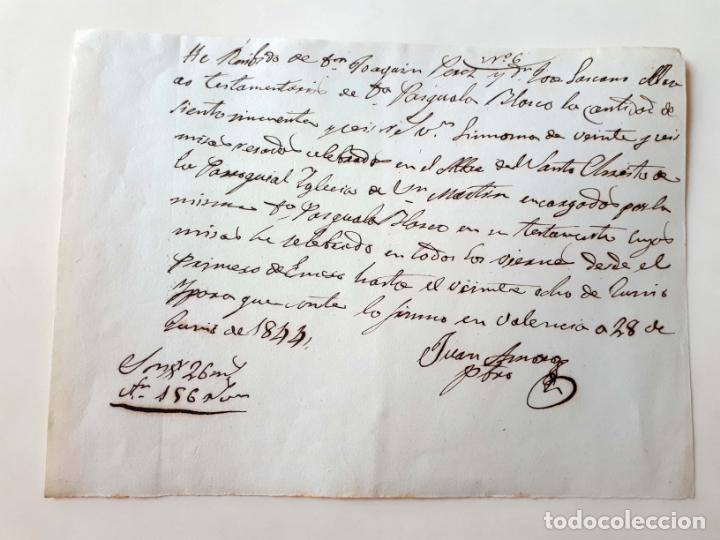 Nº 6
He Resibido de Dn Joaquin Perez y Dn Jose Lascano Alba
as testamentarios de Da Pasquala Blasco la cantidad de
siento sincuenta y seis rs vn limorna de veinte y seis
misas resadas celebradas en el Altar del Santo Christo de
la Parroquial Iglecia de Sn Martin encargadas por la
misma Da Pasquala Blasco en su testamento cuyas
misas he selebrado en todos los viernes desde el
Primero de Enero hasta el veinte ocho de Junio
Ypara que conste lo firmo en Valencia a 28 de
Junio de 1844.
Juan
Pbro
Son 26 ms
rn 156 r vn
todocoleccion
todocoleccion.net